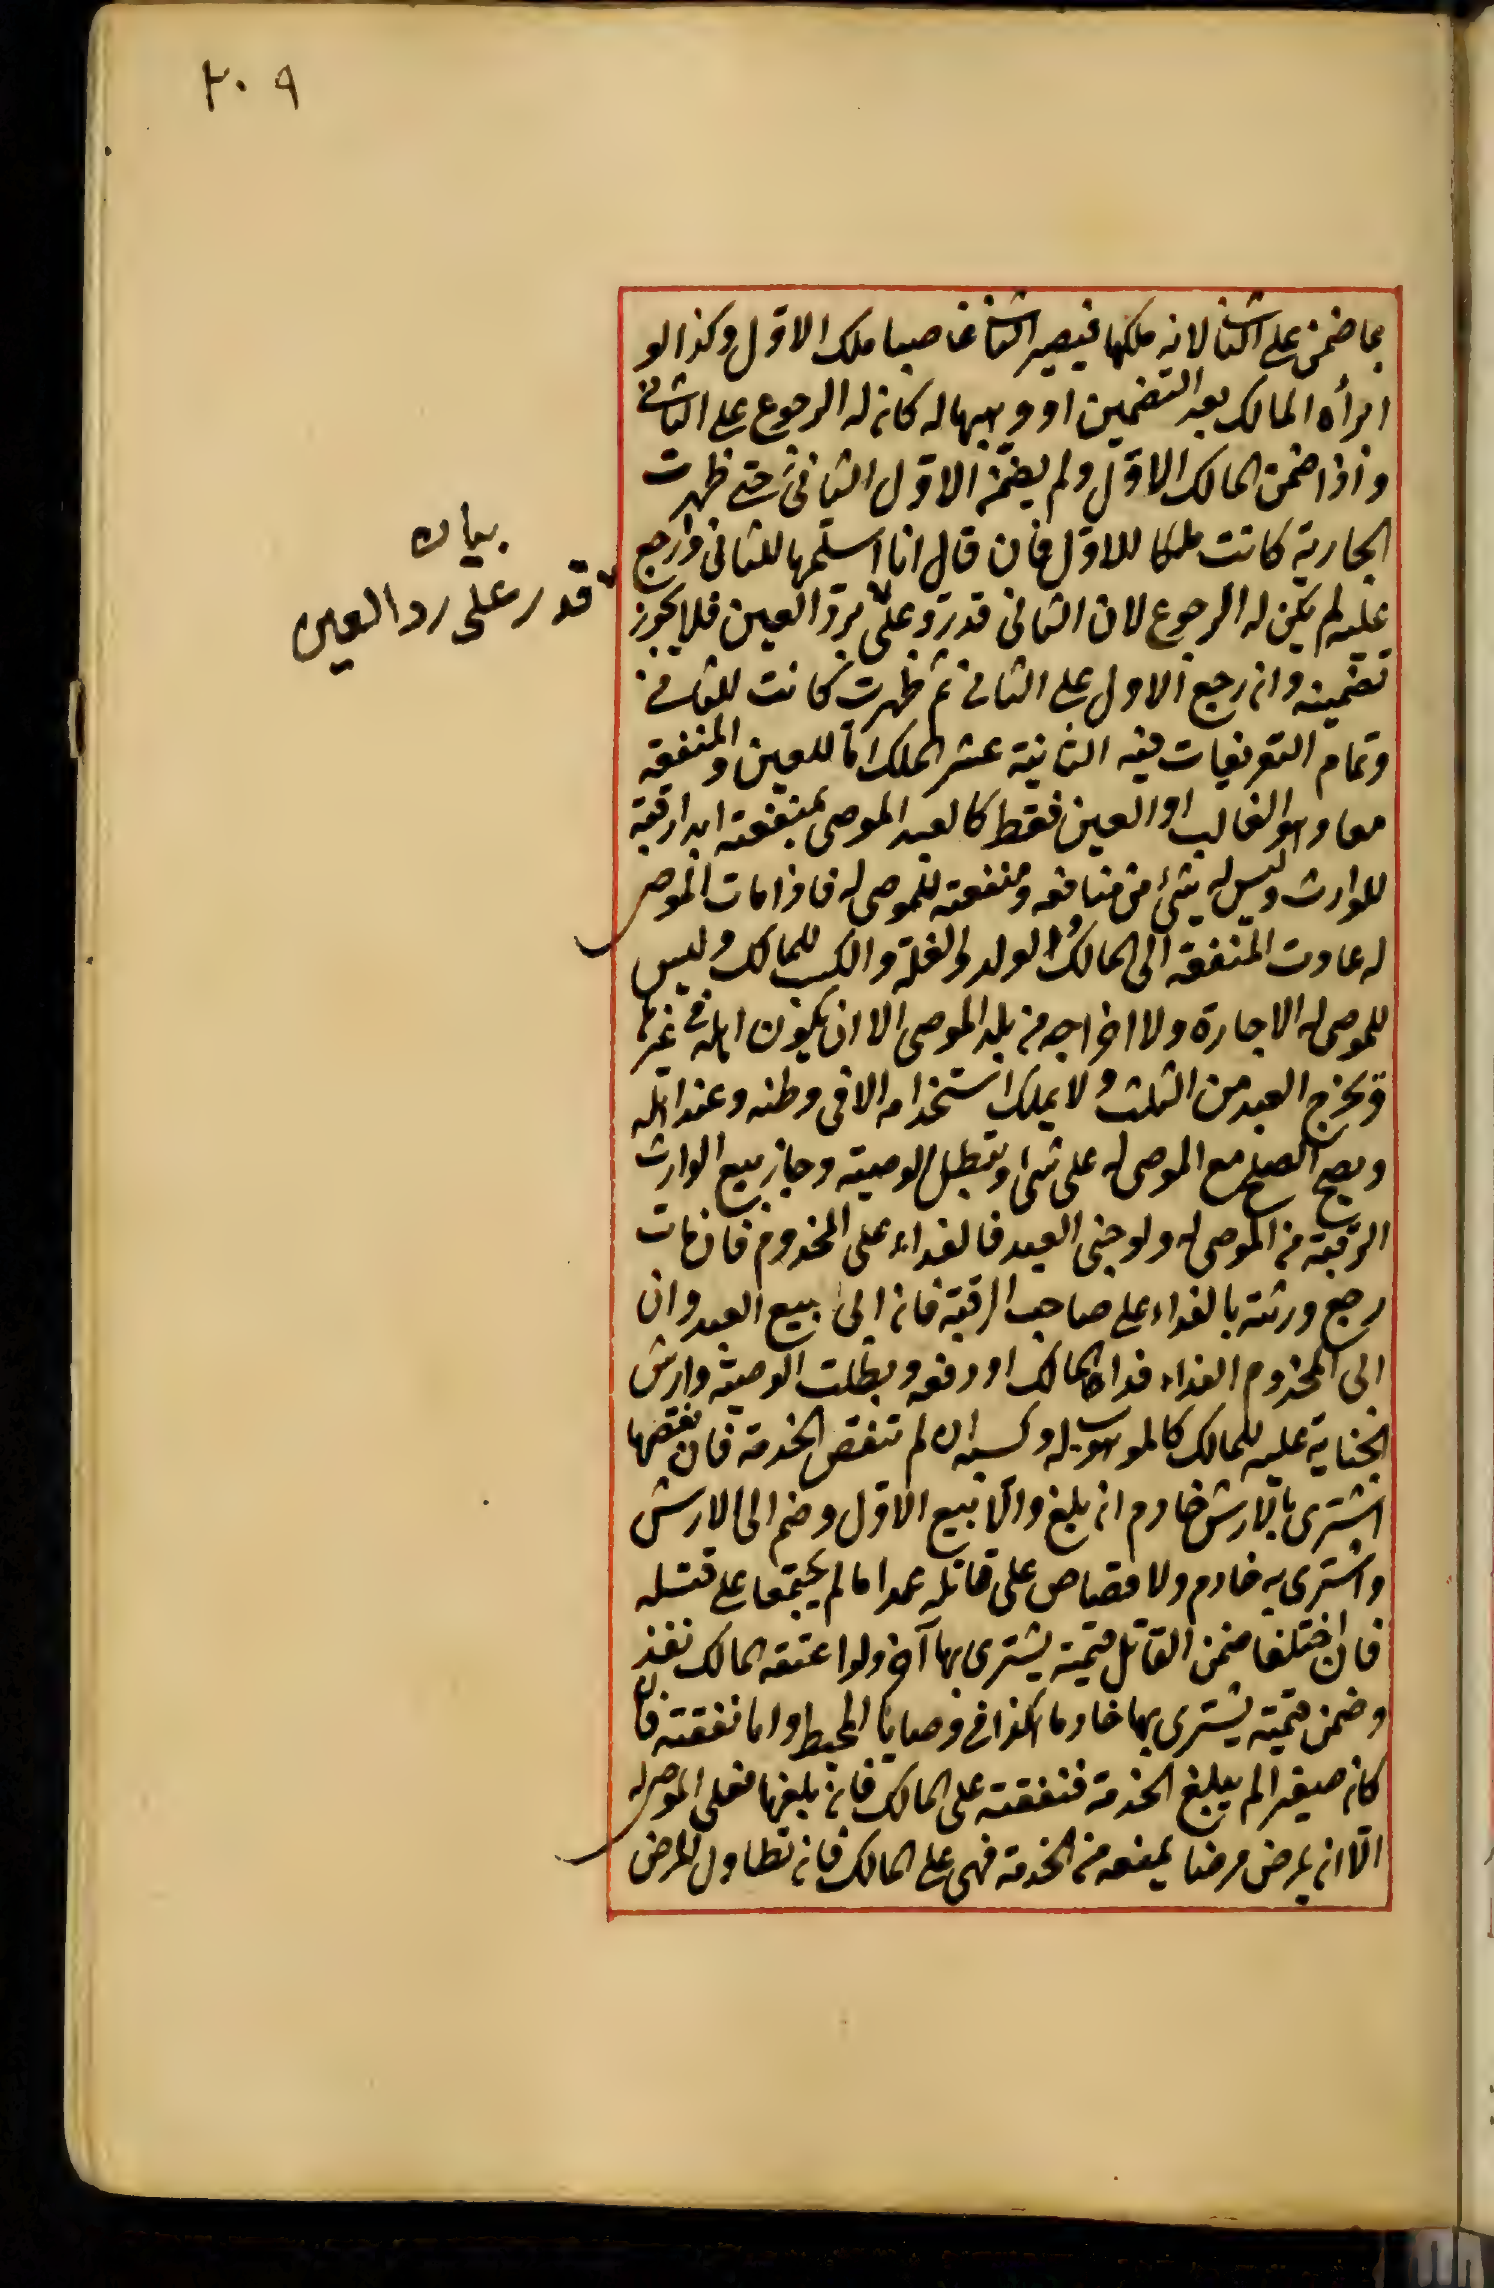 ٢٠٩
بما ضمن على الثانى لانه ملكها فيصير الثانى غاصبا ملك الاوّل وكذا لو
ابرأه المالك بعد التضمين او وهبها له كان له الرجوع على الثانى
واذا ضمن المالك الاوّل ولم يضمّن الاوّل الثانى حتى ظهرت
الجارية كانت ملكا للاوّل فان قال انا اسلّمها للثانى وارجع
عليه لم يكن له الرجوع لان الثانى قدر على رد العين فلا يجوز
بيان
قدر على رد العين
تضمينه وان رجع الاول على الثانى ثم ظهرت كانت للثانى
وتمام التفريعات فيه الثانية عشر الملك اما للعين والمنفعة
معا وهو الغالب او العين فقط كالعبد الموصى بمنفعته ابدا رقبته
للوارث وليس له شئ من منافعه ومنفعته للموصى له فاذا مات الموصى
له عادت المنفعة الى المالك والولد والغلة والكسب للمالك وليس
للموصى له الاجارة ولا اخراجه من بلد الموصى الا ان يكون اهله فى غيرها
ويخرج العبد من الثلث ولا يملك استخدامه الا فى وطنه وعند اهله
ويصح الصلح مع الموصى له على شئ وتبطل الوصية وجاز بيع الوارث
الرقبة من الموصى له ولو جنى العبد فالفداء على المخدوم فان مات
رجع ورثته بالفداء على صاحب الرقبة فان ابى بيع العبد وان
ابى المخدوم الفداء فداه المالك او دفعه وبطلت الوصية وارش
الجناية عليه للمالك كالموهوب له وكسبه ان لم تنقص الخدمة فان نقصها
اشترى بالارش خادم ان بلغ والّا بيع الاوّل وضم الى الارش
واشترى به خادم ولا قصاص على قاتله عمدا ما لم يجتمعا على قتله
فان اختلفا ضمن القاتل قيمته يشترى بها آخر ولو اعتقه المالك نفذ
وضمن قيمته يشترى بها خادما كذا فى وصايا المحيط واما نفقته فان
كان صغيرا لم يبلغ الخدمة فنفقته على المالك فان بلغها فعلى الموصى له
الّا ان يمرض مرضا يمنعه من الخدمة فهى على المالك فان تطاول المرض